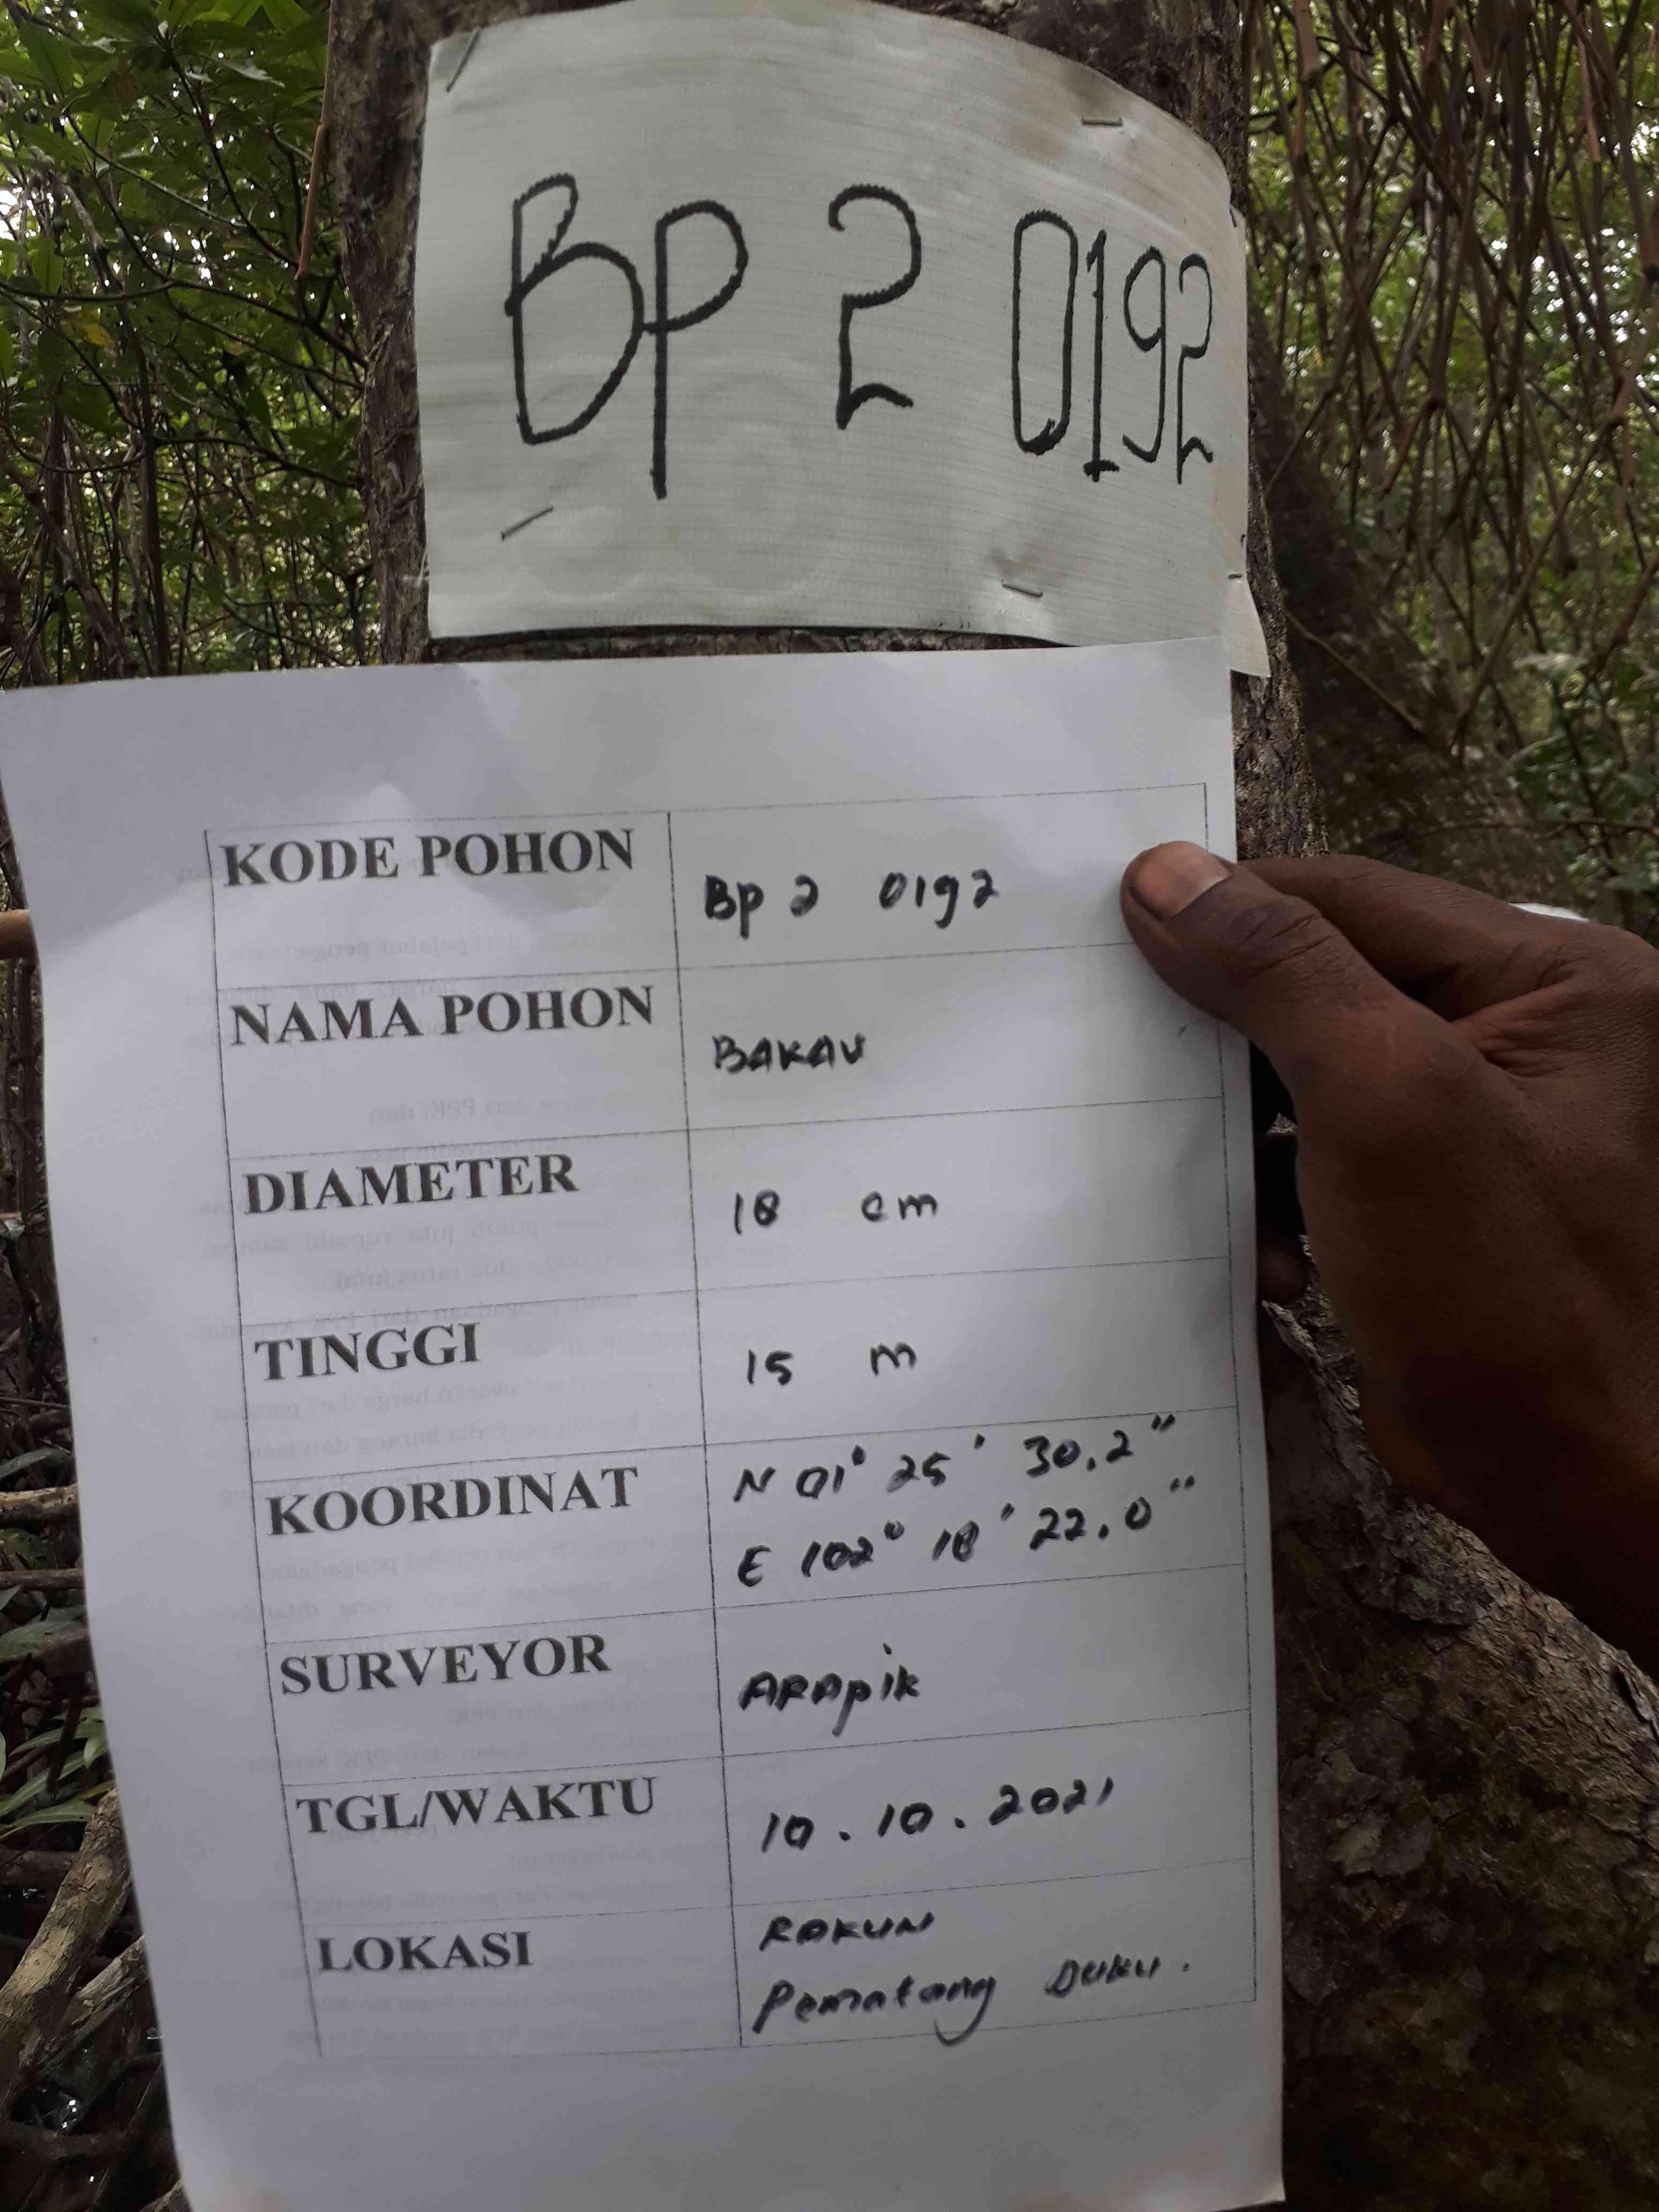 BP 2 0192
KODE POHON
Bp 2 0192
NAMA POHON
BAKAU
DIAMETER
18 cm
TINGGI
15 m
KOORDINAT
N 01° 25' 30.2"
E 102° 18' 22.0"
SURVEYOR
ARApik
TGL/WAKTU
10.10.2021
LOKASI
RAKUN
Pematang DUKU.